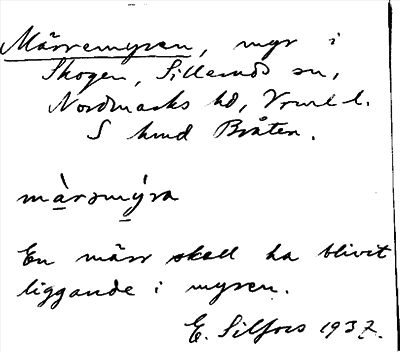 Märremyren, myr i
Skogen, Sillerud sn,
Nordmarks hd, Vrml l.
S hmd Bråten.
màrsmýra
En märr skall ha blivit
liggande i myren.
E. Silfors 1937.